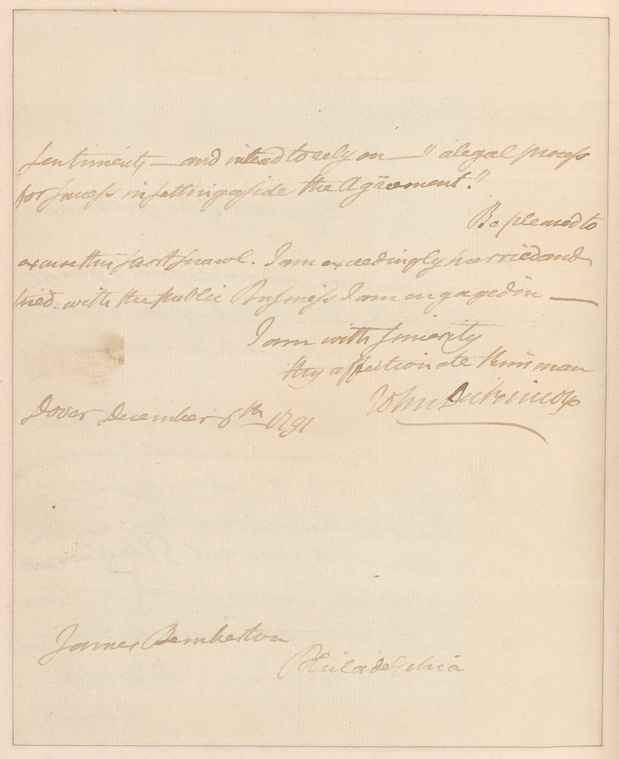 Sentiments — and intend to rely on — " a legal process
for success in setting aside the Agreement."
Be pleased to
excuse this fast scrawl. I am exceedingly hurried and
tired with the public Business I am engaged in —
I am with sincerity
thy affectionate Kinsman
John Dickinson
Dover December 6th 1791
James Pemberton
Philadelphia